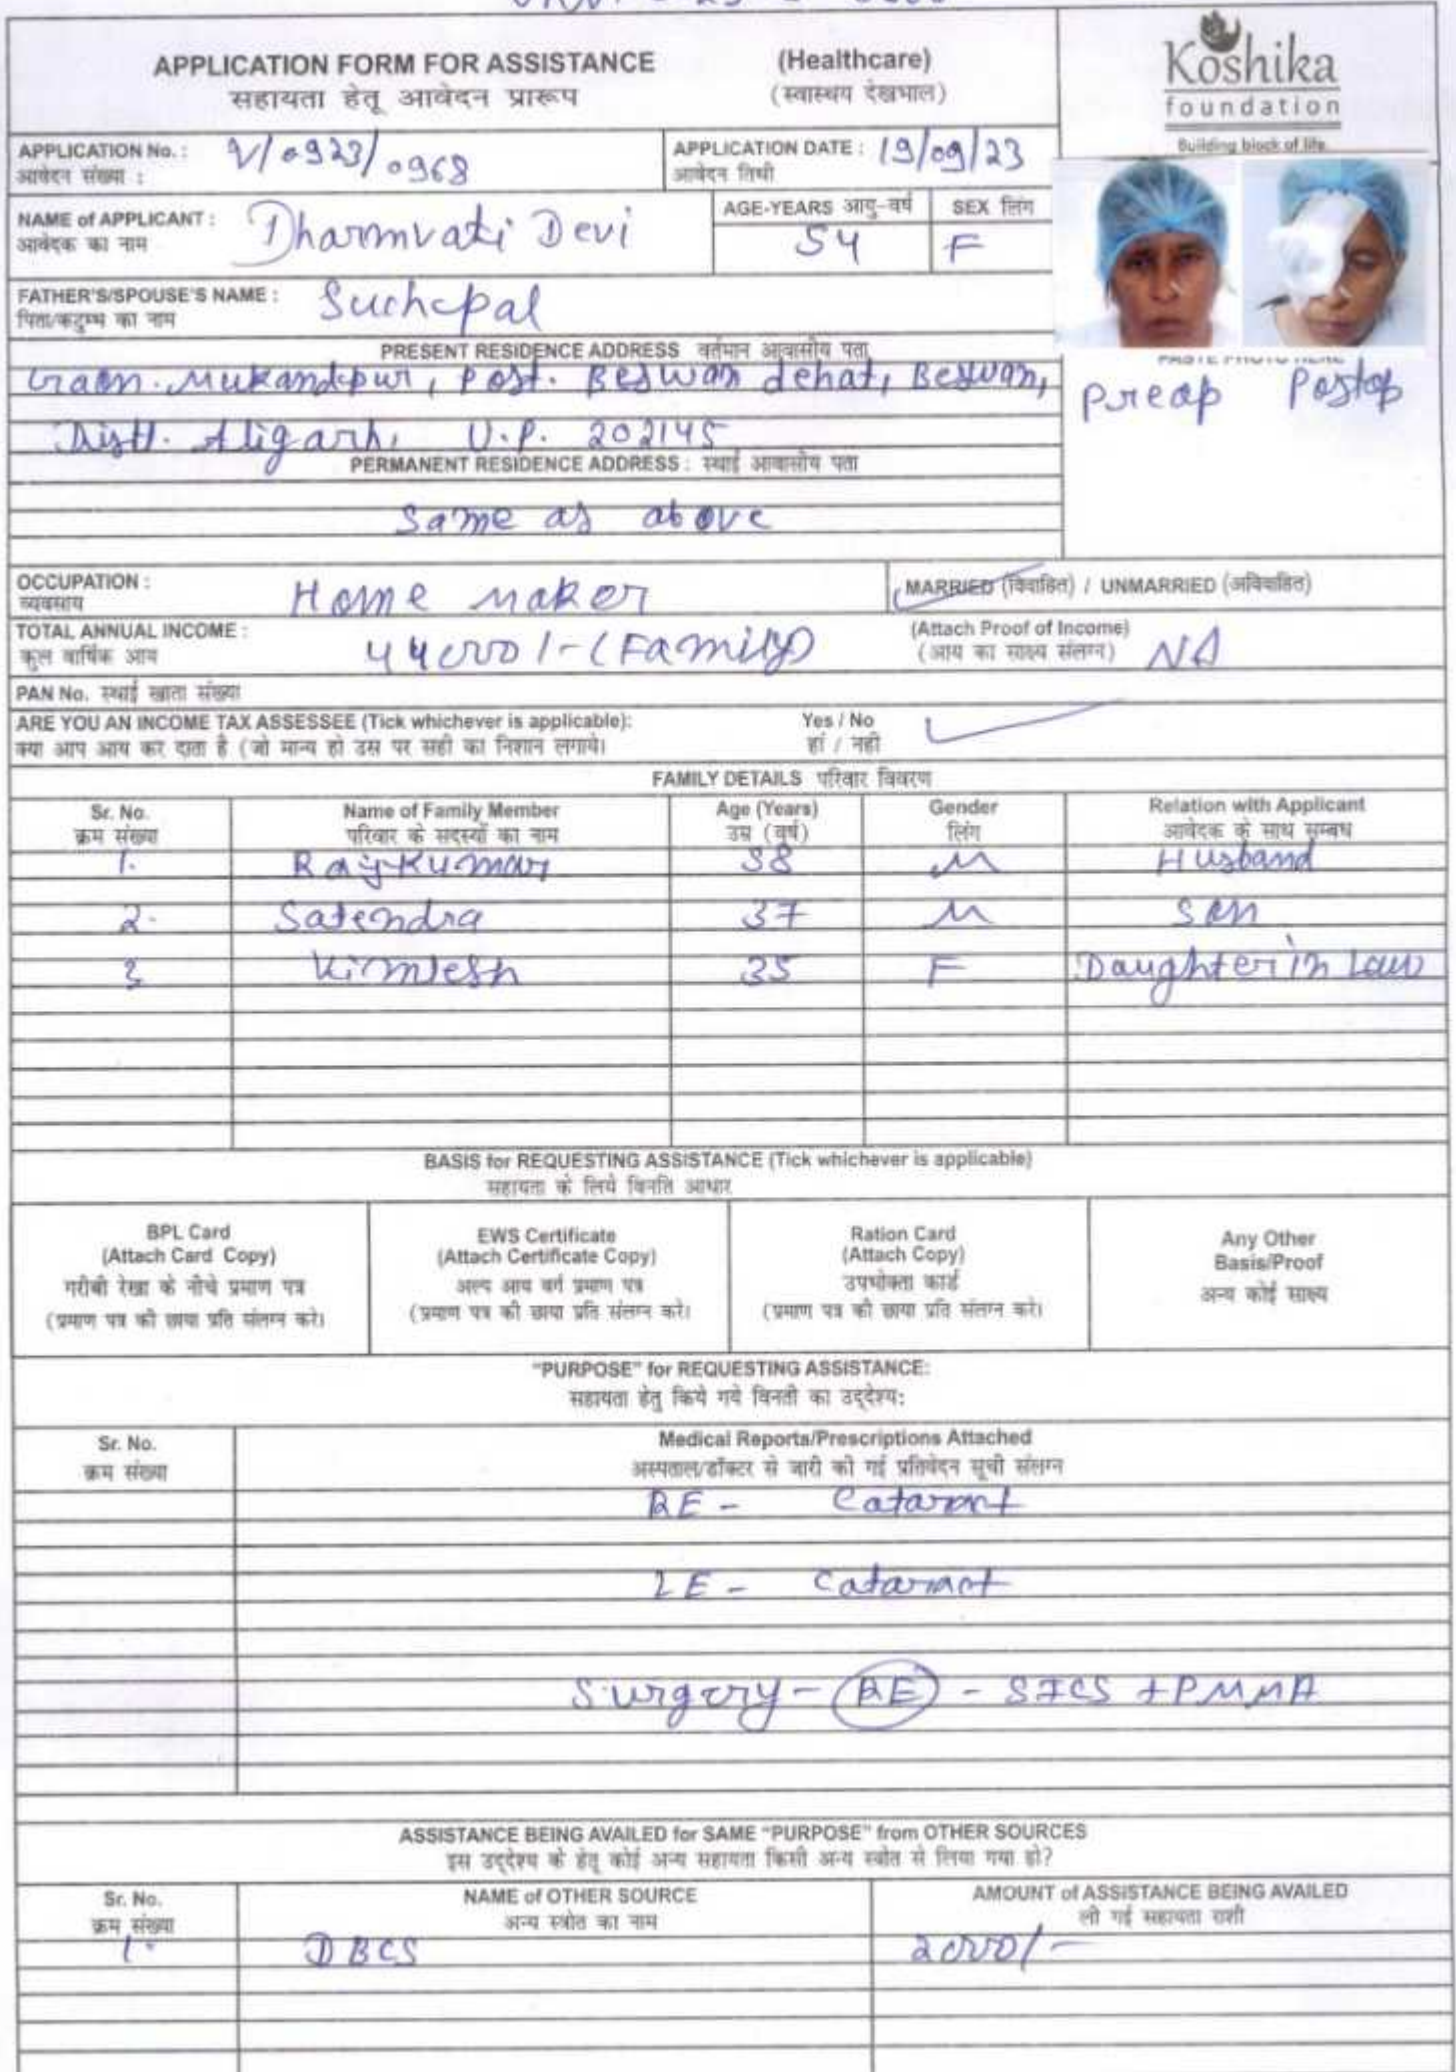 APPLICATION FORM FOR ASSISTANCE (Healthcare)
सहायता हेतू आवेदन प्रारूप (स्वास्थय देखभाल)
Koshika
foundation
Building block of life
APPLICATION No. : V/0923/0968 APPLICATION DATE : 19/09/23
आवेदन संख्या : आवेदन तिथी
NAME of APPLICANT : Dharmvati Devi AGE-YEARS आयु-वर्ष 54 SEX लिंग F
आवेदक का नाम
FATHER'S/SPOUSE'S NAME : Suchepal
पिता/कटुम्ब का नाम
PRESENT RESIDENCE ADDRESS वर्तमान आवासीय पता
Gaon. Mukandpur, Post. Beswan dehat, Beswan,
Distt. Aligarh, U.P. 202145
PASTE PHOTO HERE
Preop Postop
PERMANENT RESIDENCE ADDRESS : स्थाई आवासीय पता
Same as above
OCCUPATION : Home maker MARRIED (विवाहित) / UNMARRIED (अविवाहित)
व्यवसाय
TOTAL ANNUAL INCOME : 44000/-(Family) (Attach Proof of Income) NA
कुल वार्षिक आय (आय का साक्ष्य संलग्न)
PAN No. स्थाई खाता संख्या
ARE YOU AN INCOME TAX ASSESSEE (Tick whichever is applicable): Yes / No
क्या आप आय कर दाता है (जो मान्य हो उस पर सही का निशान लगाये। हां / नही
FAMILY DETAILS परिवार विवरण
Sr. No. Name of Family Member Age (Years) Gender Relation with Applicant
क्रम संख्या परिवार के सदस्यों का नाम उम्र (वर्ष) लिंग आवेदक के साथ सम्बध
1. Rajkumar 58 M Husband
2. Satendra 37 M Son
3 Vimlesh 35 F Daughter in Law
BASIS for REQUESTING ASSISTANCE (Tick whichever is applicable)
सहायता के लिये विनति आधार
BPL Card
(Attach Card Copy)
गरीबी रेखा के नीचे प्रमाण पत्र
(प्रमाण पत्र की छाया प्रति संलग्न करे।
EWS Certificate
(Attach Certificate Copy)
अल्प आय वर्ग प्रमाण पत्र
(प्रमाण पत्र की छाया प्रति संलग्न करे।
Ration Card
(Attach Copy)
उपभोक्ता कार्ड
(प्रमाण पत्र की छाया प्रति संलग्न करे।
Any Other
Basis/Proof
अन्य कोई साक्ष्य
"PURPOSE" for REQUESTING ASSISTANCE:
सहायता हेतु किये गये विनती का उद्देश्य:
Sr. No. Medical Reports/Prescriptions Attached
क्रम संख्या अस्पताल/डॉक्टर से जारी की गई प्रतिवेदन सूची संलग्न
RE - Cataract
LE - Cataract
Surgery - RE - SICS + PMMA
ASSISTANCE BEING AVAILED for SAME "PURPOSE" from OTHER SOURCES
इस उद्देश्य के हेतू कोई अन्य सहायता किसी अन्य स्त्रोत से लिया गया हो?
Sr. No. NAME of OTHER SOURCE AMOUNT of ASSISTANCE BEING AVAILED
क्रम संख्या अन्य स्त्रोत का नाम ली गई सहायता राशी
1. DBCS 2000/-